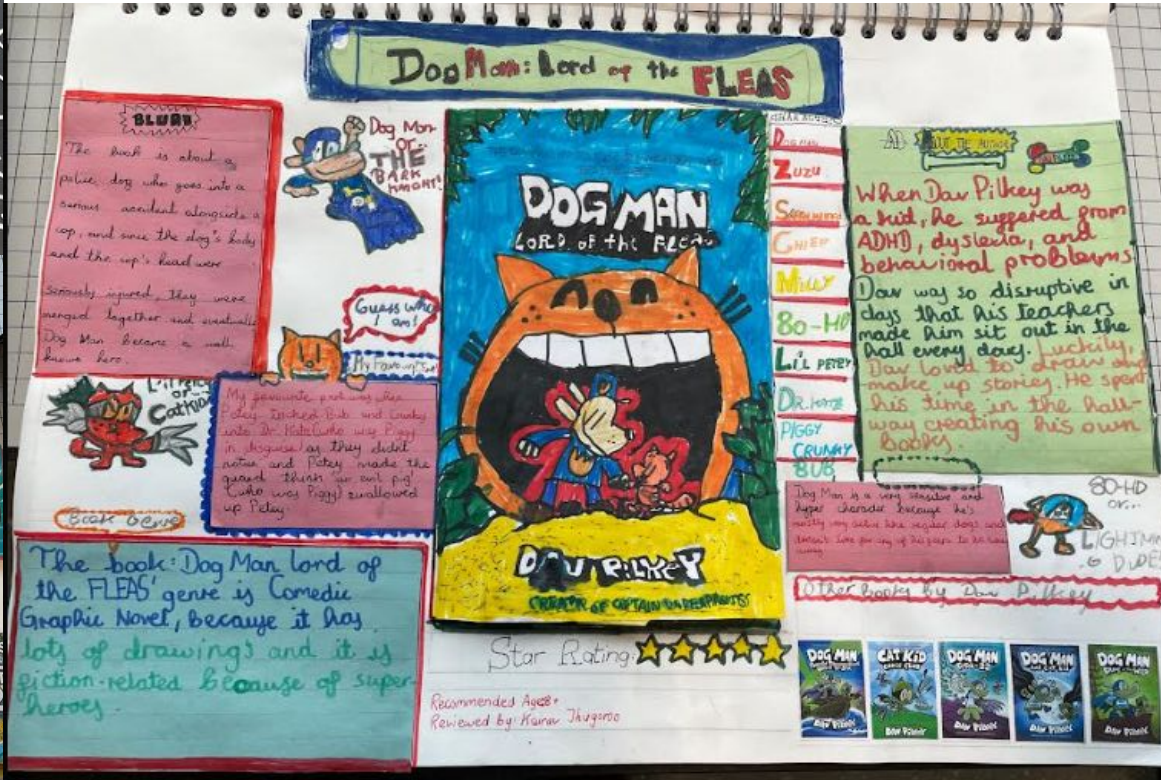 Dog Man: Lord of the FLEAS
BLURB
The book is about a
police dog who goes into a
serious accident alongside a
cop, and since the dog's body
and the cop's head were
seriously injured, they were
merged together and eventually
Dog Man became a well
known hero.
Dog Man
or...
THE
BARK
KNIGHT!
Guess who
I am!
My Favourite
My favourite part was
Petey locked Bub and Crunky
into Dr. Kate (who was Piggy
in disguise) as they didn't
notice and Petey made the
guard think 'an evil pig'
(who was Piggy) swallowed
up Petey.
Lil Petey
or
Cat Kid
Book Genre
The book: Dog Man Lord of
the FLEAS' genre is Comedic
Graphic Novel, because it has
lots of drawings and it is
fiction-related because of super-
heroes.
DOG MAN
LORD OF the FLEAS
DAV PILKEY
CREATOR OF CAPTAIN UNDERPANTS
Star Rating:
Recommended Age: 8+
Reviewed by: Kairav Jhugaroo
DOG MAN
ZUZU
CHIEF
MILLY
80-HD
LiL PETEY
DR. KATE
PIGGY
CRUNKY
BUB
ABOUT THE AUTHOR
When Dav Pilkey was
a kid, he suffered from
ADHD, dyslexia, and
behavioral problems.
Dav was so disruptive in
days that his teachers
made him sit out in the
hall every day. Luckily,
Dav loved to draw and
make up stories. He spent
his time in the hall-
way creating his own
books.
Dog Man is a very sensitive and
hyper character because he's
mostly very active like regular dogs and
doesn't like for any of his peers to be
away.
80-HD
or...
LIGHTNIN
G DUDE!
Other books by Dav Pilkey
DOG MAN
DAV PILKEY
CAT KID
DAV PILKEY
DOG MAN
DAV PILKEY
DOG MAN
DAV PILKEY
DOG MAN
DAV PILKEY